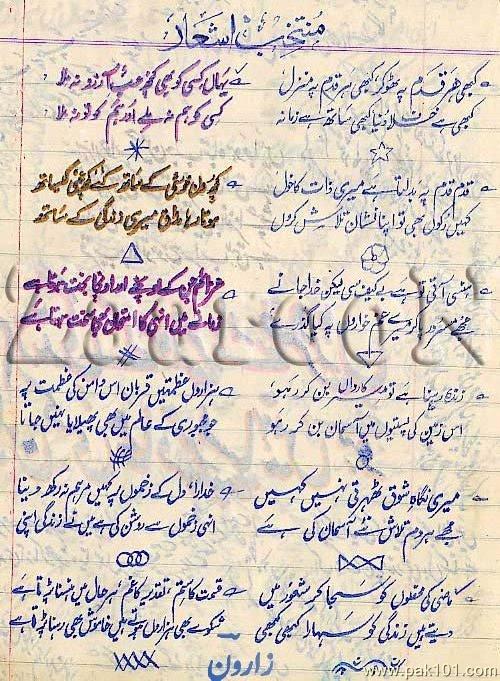 منتخب اشعار
کبھی ہر قدم پہ ٹھوکر، کبھی ہر قدم پہ منزل یہاں کسی کو بھی کچھ حسبِ آرزو نہ ملا
کبھی ہے خفا یہ دنیا کبھی ساتھ ہے زمانہ کسی کو ہم نہ ملے اور ہم کو تو نہ ملا
قدم قدم پہ بدلتا ہے میری ذات کا خول کچھ دن خوشی کے ساتھ کے ساتھ
کہیں رکوں بھی تو اپنا نشان تلاش کروں ہوتا رہا مذاق میری زندگی کے ساتھ
ہنسی آتی تو ہے بے کیف سی لیکن خدا جانے عزائم جن کے اونچے اور اونچا بخت ہوتا ہے
مجھے مسرور پا کر میرے غم خواروں پہ کیا گذرے زمانے میں انہی کا امتحان بھی سخت ہوتا ہے
زندہ رہنا ہے تو میر کارواں بن کر رہو ہزاروں عظمتیں قربان اس دامن کی عظمت پہ
اس زمین کی پستیوں میں آسمان بن کر رہو جو مجبوری کے عالم میں بھی پھیلایا نہیں جاتا
میری نگاہِ شوق ٹھہرتی نہیں کہیں خدارا، دل کے زخموں پر کہیں مرہم نہ رکھ دینا
مجھے ہر دم تلاش نئے آسمان کی ہے انہی زخموں سے روشن کی ہے میں نے زندگی اپنی
ماضی کی محفلوں کو سجا کر شعور میں قسمت کا ستم، تقدیر کا غم، ہر حال میں ہنسنا پڑتا ہے
دیتے ہیں زندگی کو سہارا کبھی کبھی شکوے بھی ہزاروں ہوتے ہیں خاموش بھی رہنا پڑتا ہے
زارون
www.pak101.com